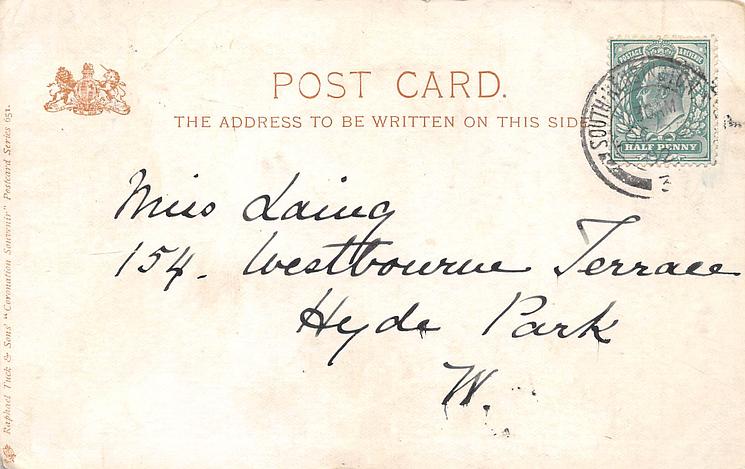 POST CARD.
THE ADDRESS TO BE WRITTEN ON THIS SIDE
POSTAGE REVENUE
HALF PENNY
SOUTH
3
Miss Laing
154. Westbourne Terrace
Hyde Park
W.
Raphael Tuck & Sons' "Coronation Souvenir" Postcard Series 651.